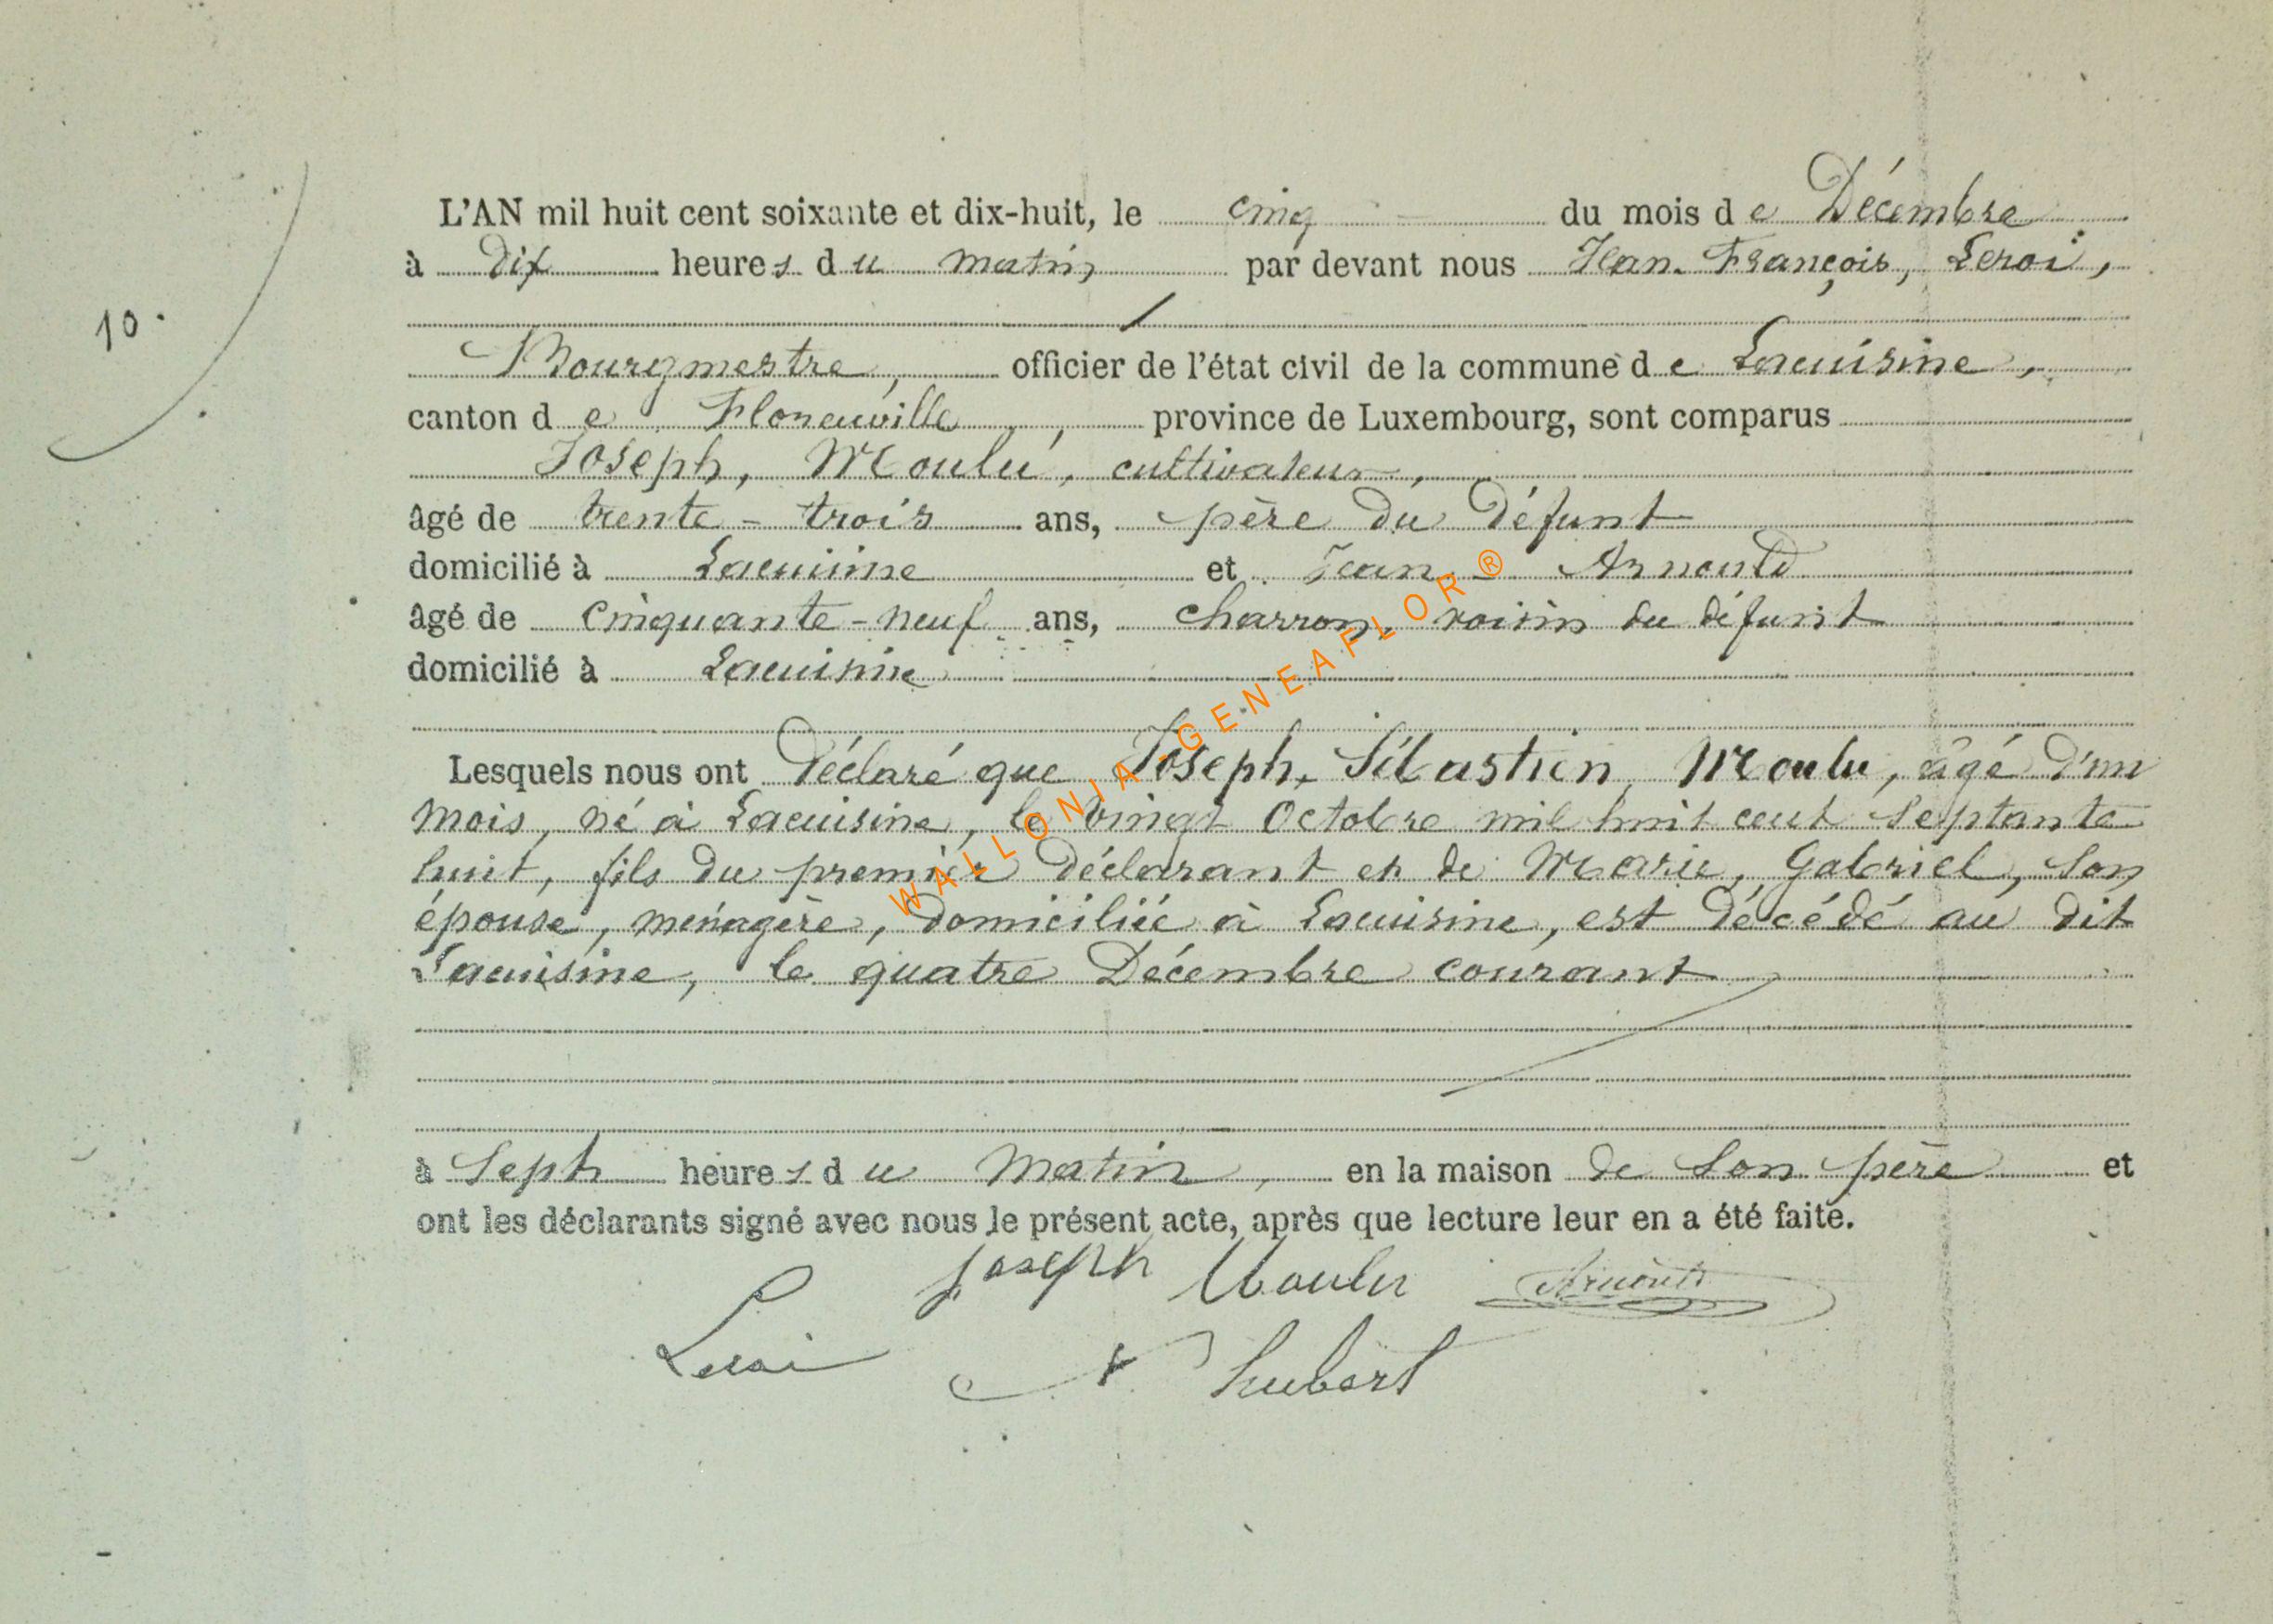 L'AN mil huit cent soixante et dix-huit, le cinq du mois de Décembre
à dix heures du matin par devant nous Jean-François, Leroi,
10.
Bourgmestre, officier de l'état civil de la commune de Lacuisine,
canton de Florenville, province de Luxembourg, sont comparus
Joseph, Moulu, cultivateur,
âgé de trente-trois ans, père du défunt
domicilié à Lacuisine et Jean - Arnould
âgé de cinquante-neuf ans, charron, voisin du défunt
domicilié à Lacuisine
Lesquels nous ont déclaré que Joseph, Sébastien, Moulu, âgé d'un
mois, né à Lacuisine, le vingt Octobre mil huit cent septante
huit, fils du premier déclarant et de Marie, Gabriel, son
épouse, ménagère, domiciliée à Lacuisine, est décédé au dit
Lacuisine, le quatre Décembre courant
à sept heures du matin, en la maison de son père et
ont les déclarants signé avec nous le présent acte, après que lecture leur en a été faite.
Joseph Moulu Arnould
Leroi Hubert
WALLONIA GENEAFLOR®